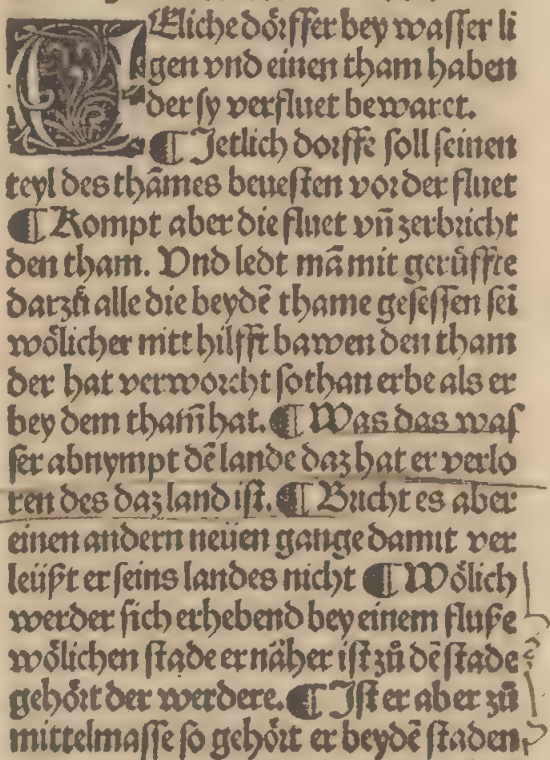 WEliche dörffer bey wasser li
gen vnd einen tham haben
der sy verfluet bewarct.
¶ Jetlich dorffe soll seinen
teyl des thāmes beuesten vor der fluet
¶ Kompt aber die fluet vn̄ zerbricht
den tham. Vnd ledt mā mit gerüffte
darzů alle die beydē thame gesessen sei
wölicher nitt hilfft bawen den tham
der hat verworcht sothan erbe als er
bey dem tham̄ hat. ¶ Was das was
ser abnympt dē lande daz hat er verlo
ren des daz land ist. ¶ Bricht es aber
einen andern neüen gange damit ver
leüßt er seins landes nicht ¶ Wölich
werder sich erhebend bey einem fluße
wölichen stade er näher ist zů dē stade
gehört der werdere. ¶ Ist er aber zů
mittelmasse so gehört er beydē staden